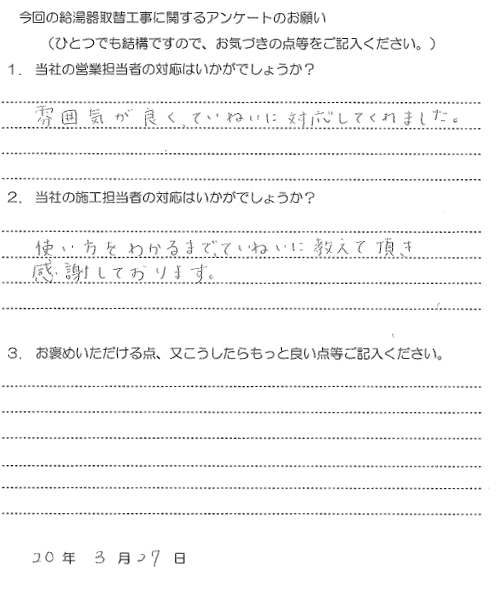 今回の給湯器取替工事に関するアンケートのお願い
（ひとつでも結構ですので、お気づきの点等をご記入ください。）
１．当社の営業担当者の対応はいかがでしょうか？
雰囲気が良く、ていねいに対応してくれました。
２．当社の施工担当者の対応はいかがでしょうか？
使い方をわかるまで、ていねいに教えて頂き
感謝しております。
３．お褒めいただける点、又こうしたらもっと良い点等ご記入ください。
20年 3月27日